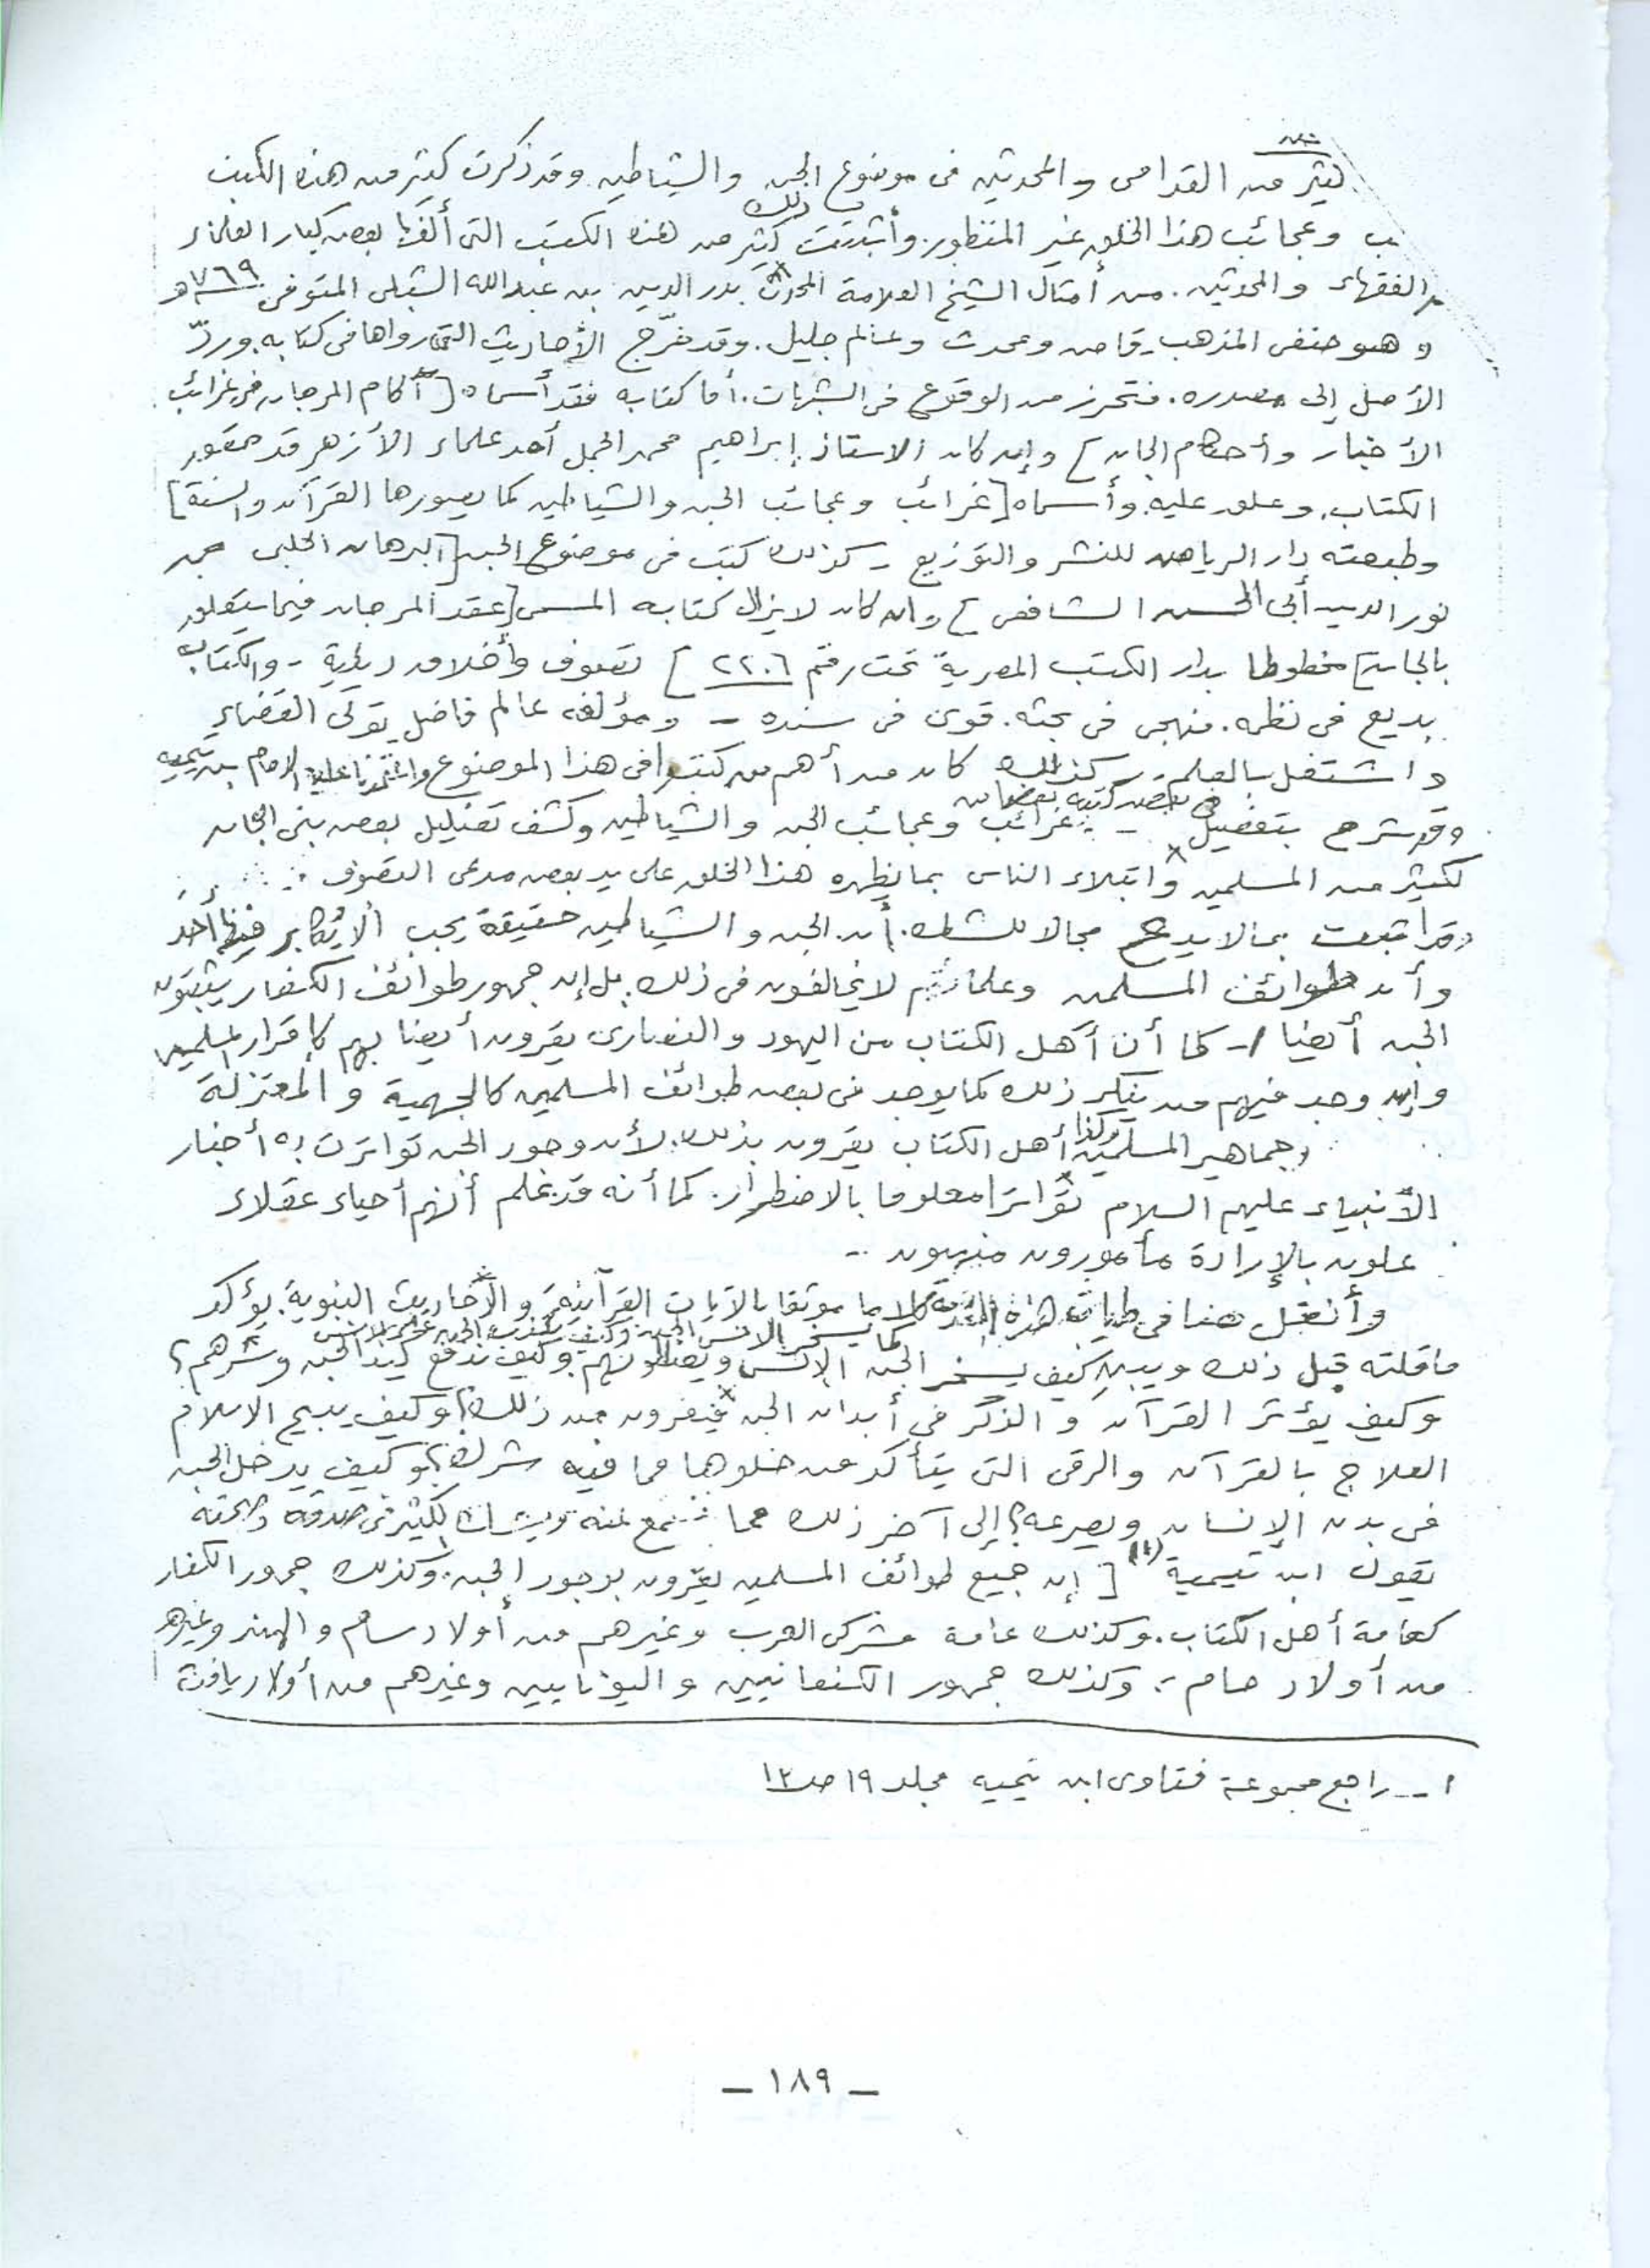 كثير من القدامى والمحدثين فى موضوع الجن والشياطين وقد ذكرت كثير من هذه الكتب
وعجائب هذا الخلق غير المنظور. وأثبتت ذلك كثير من هذه الكتب التى ألفها بعض كبار العلماء
والفقهاء والمحدثين. من أمثال الشيخ العلامة المحدث بدر الدين بن عبدالله الشبلى المتوفى ٧٦٩هـ
وهو حنفى المذهب. قاص ومحدث وعالم جليل. وقد خرّج الأحاديث التى رواها فى كتابه. وردّ
الأصل إلى مصدره. فتحرز من الوقوع فى الشبهات. أما كتابه فقد أسماه [آكام المرجان فى غرائب
الأخبار وأحكام الجان] وإن كان الاستاذ إبراهيم محمد الجمل أحد علماء الأزهر قد حقق
الكتاب. وعلق عليه. وأسماه [غرائب وعجائب الجن والشياطين كما يصورها القرآن والسنة]
وطبعته دار الرياض للنشر والتوزيع - كذلك كتب فى موضوع الجن [البرهان الحلبى
نور الدين أبى الحسن الشافعى] وان كان لايزال كتابه المسمى [عقد المرجان فيما يتعلق
بالجان] مخطوطا بدار الكتب المصرية تحت رقم ٢٢٠٦] تصوف وأخلاق دينية - والكتاب
بديع فى نظمه. منهجى فى بحثه. قوى فى سنده - ومؤلفه عالم فاضل تولى القضاء
واشتغل بالعلم - كذلك كان من أهم من كتبوا فى هذا الموضوع واعتمدنا عليه الإمام بن تيميه
وقد شرح بتفصيل فى بعض كتبه بعضا من غرائب وعجائب الجن والشياطين وكشف تضليل بعض بنى الجان
لكثير من المسلمين وابتلاء الناس بما يظهره هذا الخلق على يد بعض مدعى التصوف
وقد اثبت بما لا يدع مجالا للشك. أن الجن والشياطين حقيقة يجب ألا يُكابر فيها أحد
وأن طوائف المسلمين وعلمائهم لا يخالفون فى ذلك. بل إن جمهور طوائف الكفار يثبتون
الجن أيضا - كما أن أهل الكتاب من اليهود والنصارى يقرون أيضا بهم كإقرار المسلمين
وإن وجد فيهم من ينكر ذلك كما يوجد فى بعض طوائف المسلمين كالجهمية والمعتزلة
وجماهير المسلمين وكذا أهل الكتاب يقرون بذلك. لأن وجود الجن تواترت به أخبار
الأنبياء عليهم السلام تواترا معلوما بالاضطرار. كما أنه قد علم أنهم أحياء عقلاء
علون بالإرادة مأمورون منهيون ..
وأنقل هنا فى طيات هذه المقدمة كلاما موثقا بالآيات القرآنية والأحاديث النبوية. يؤكد
ماقلته قبل ذلك ويبين كيف يسخر الجن الإنس كما يسخر الانس الجن ويضللونهم. وكيف ندفع كيد الجن وشرهم؟
وكيف يؤثر القرآن والذكر فى أبدان الجن فيفرون من ذلك؟ وكيف يبيح الاسلام
العلاج بالقرآن والرقى التى يتأكد من خلوها مما فيه شرك؟ وكيف يدخل الجن
فى بدن الإنسان ويصرعه؟ إلى آخر ذلك مما نسمع عنه ويشك الكثير فى صدقه وصحته
يقول ابن تيمية (١) [إن جميع طوائف المسلمين يقرون بوجود الجن. وكذلك جمهور الكفار
كعامة أهل الكتاب. وكذلك عامة مشركى العرب وغيرهم من أولاد سام والهند وغيرهم
من أولاد حام. وكذلك جمهور الكنعانيين واليونانيين وغيرهم من أولاد يافث
١ - راجع مجموعة فتاوى ابن تيميه مجلد ١٩ صـ١٣
- ١٨٩ -